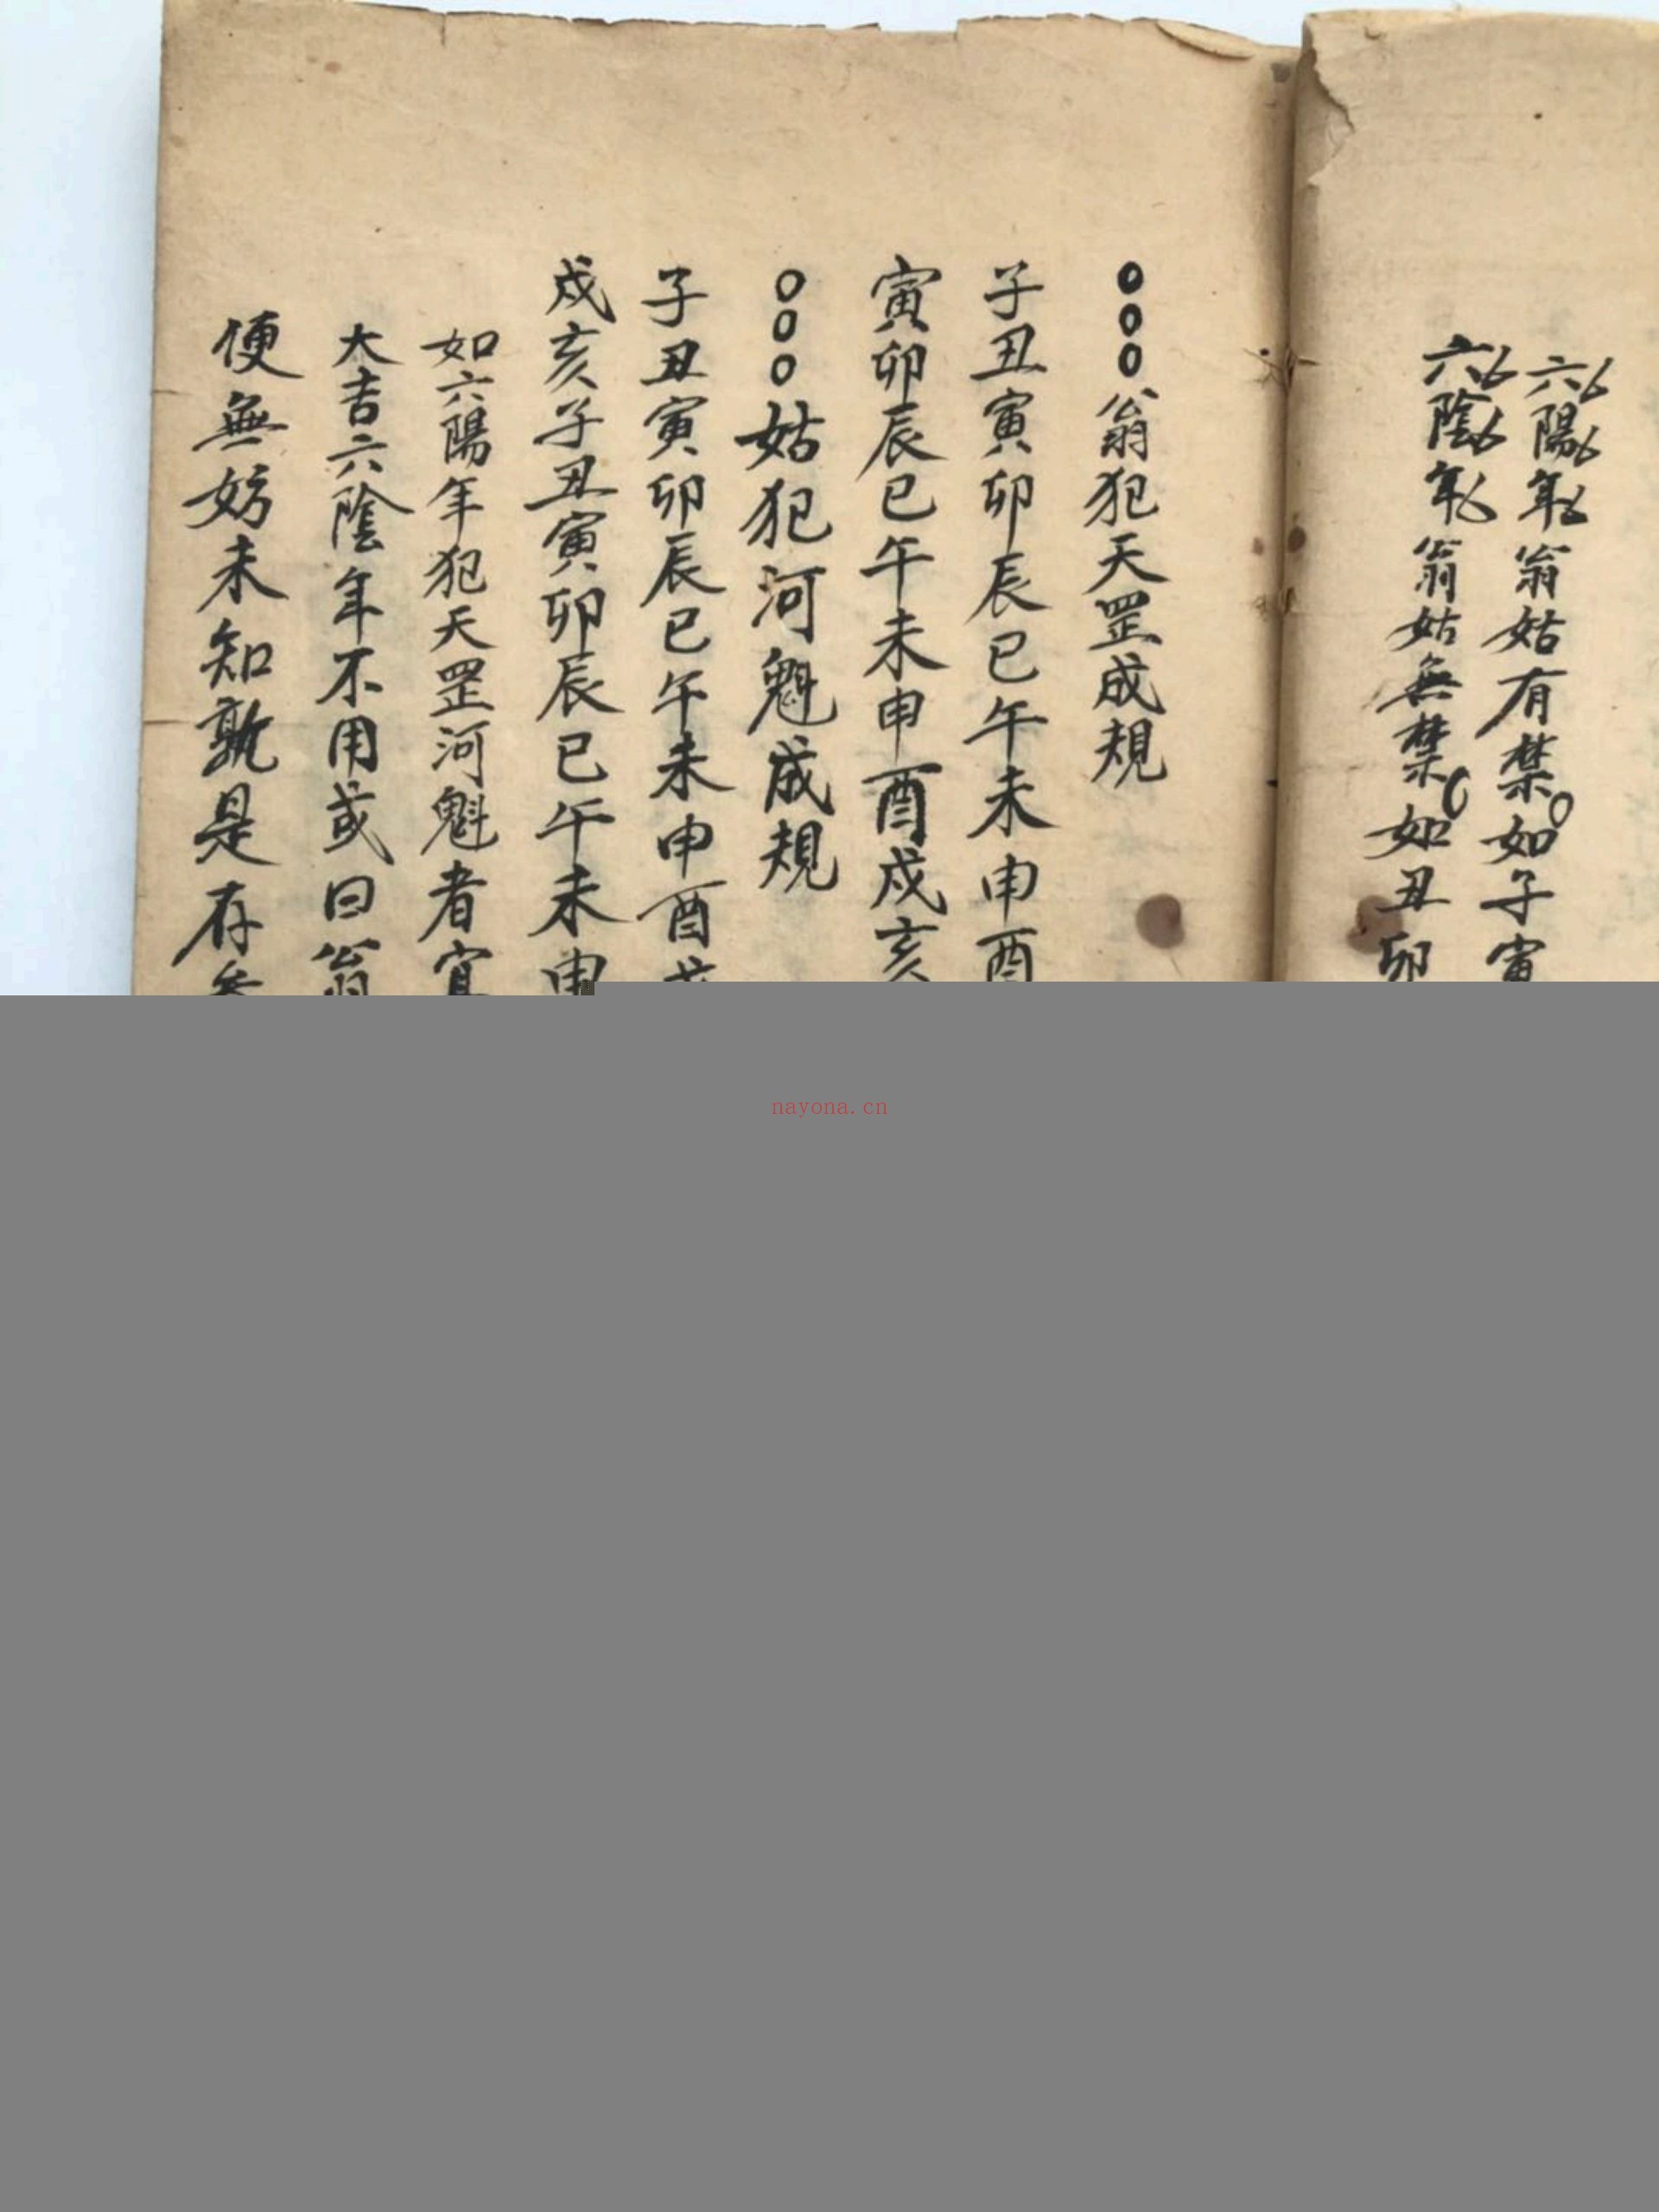 六陽年翁姑有禁○如子寅
六陰年翁姑無禁○如丑卯
○○○翁犯天罡成規
子丑寅卯辰巳午未申酉
寅卯辰巳午未申酉戌亥
○○○姑犯河魁成規
子丑寅卯辰巳午未申酉
戌亥子丑寅卯辰巳午未申
如六陽年犯天罡河魁者宜
大吉六陰年不用或曰翁
便無妨未知孰是存
nayona.cn